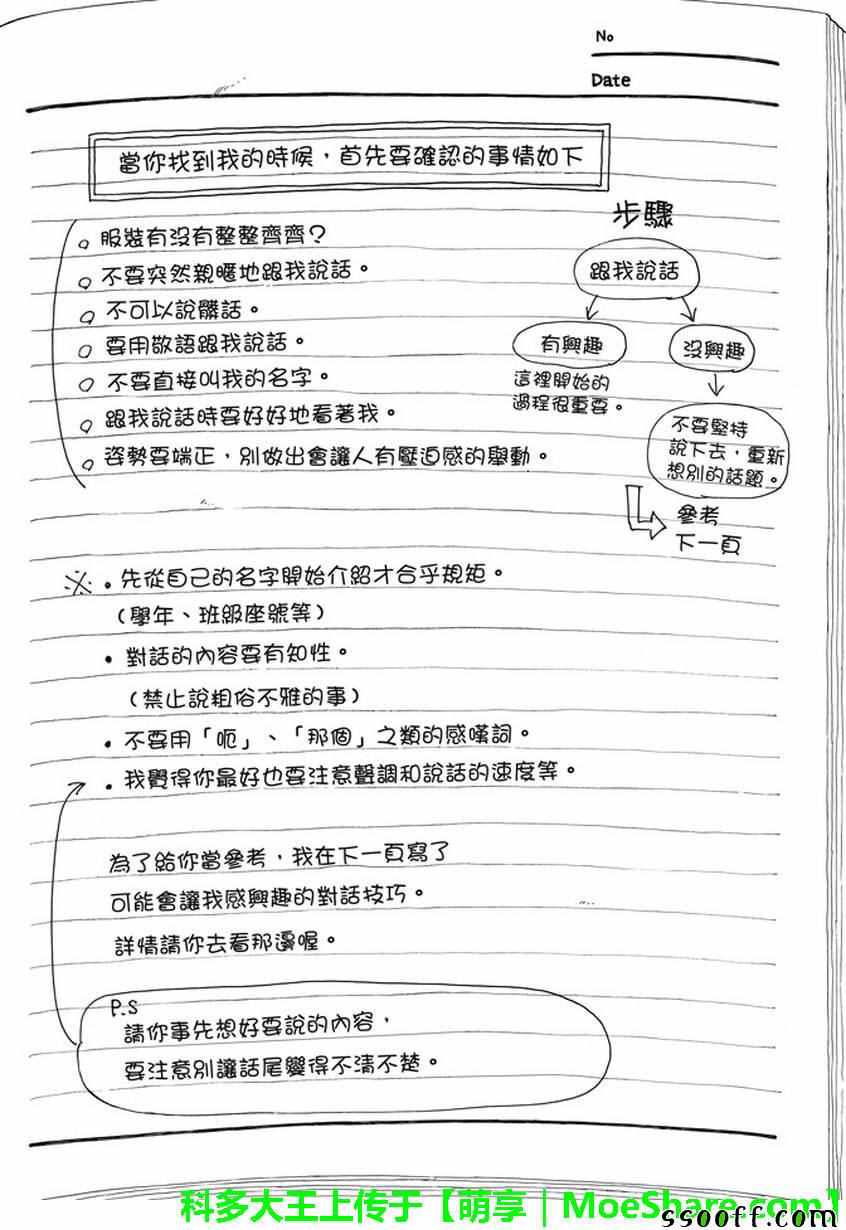 No
Date
當你找到我的時候，首先要確認的事情如下
服裝有沒有整整齊齊？
不要突然親暱地跟我說話。
不可以說髒話。
要用敬語跟我說話。
不要直接叫我的名字。
跟我說話時要好好地看著我。
姿勢要端正，別做出會讓人有壓迫感的舉動。
步驟
跟我說話
有興趣
沒興趣
這裡開始的
過程很重要。
不要堅持
說下去，重新
想別的話題。
參考
下一頁
※・先從自己的名字開始介紹才合乎規矩。
（學年、班級座號等）
・對話的內容要有知性。
（禁止說粗俗不雅的事）
・不要用「呃」、「那個」之類的感嘆詞。
・我覺得你最好也要注意聲調和說話的速度等。
為了給你當參考，我在下一頁寫了
可能會讓我感興趣的對話技巧。
詳情請你去看那邊喔。
P.S
請你事先想好要說的內容，
要注意別讓話尾變得不清不楚。
科多大王上传于【萌享｜MoeShare.com】
ssooff.com